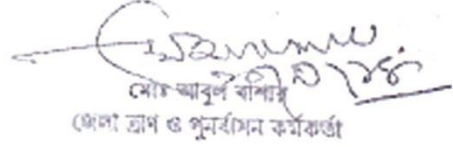 মোঃ আবুল বাশার
জেলা ত্রাণ ও পুনর্বাসন কর্মকর্তা